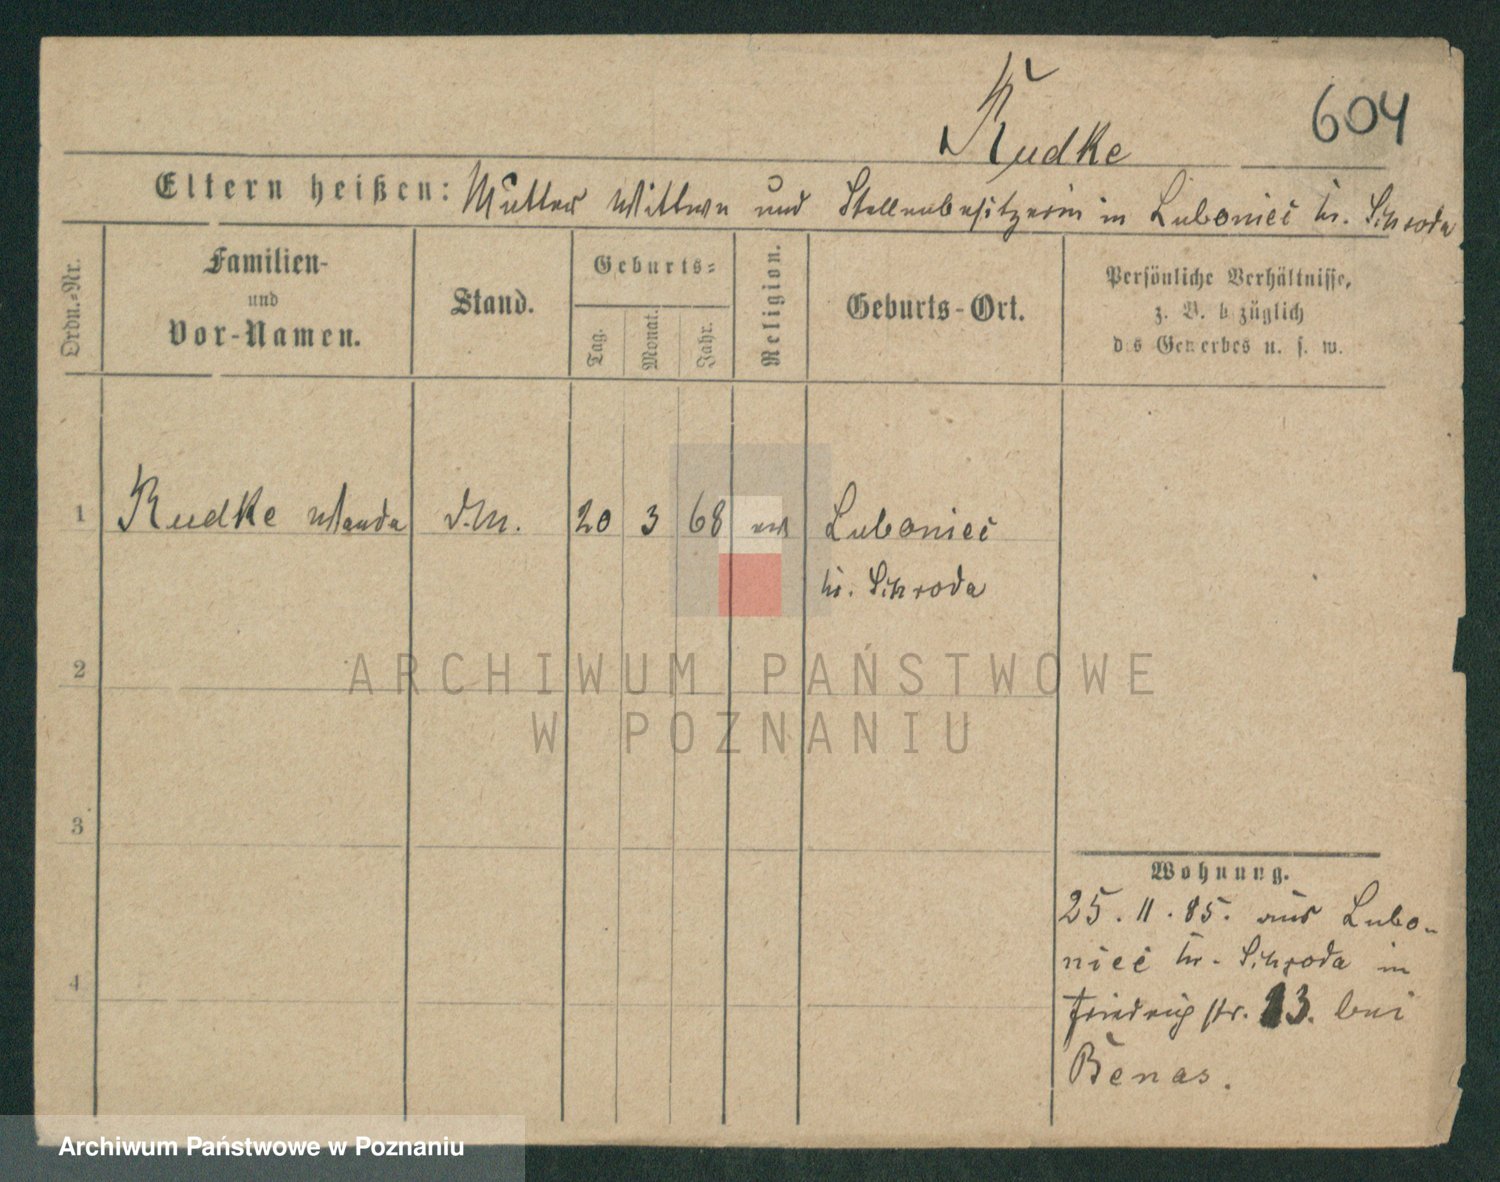 Rudke
604
Eltern heißen: Mutter Wittwe und Stellenbesitzerin in Luboniec Kr. Schroda
Ordn.-Nr.
Familien-
und
Vor-Namen.
Stand.
Geburts-
Tag.
Monat.
Jahr.
Religion.
Geburts-Ort.
Persönliche Verhältnisse,
z. B. bezüglich
des Gewerbes u. s. w.
1 Rudke Wanda d.M. 20 3 68 ev Luboniec
Kr. Schroda
2
3
4
Wohnung.
25. 11. 85. aus Lubo-
niec Kr. Schroda in
Friedrichstr. 13. bei
Benas.
ARCHIWUM PAŃSTWOWE
W POZNANIU
Archiwum Państwowe w Poznaniu